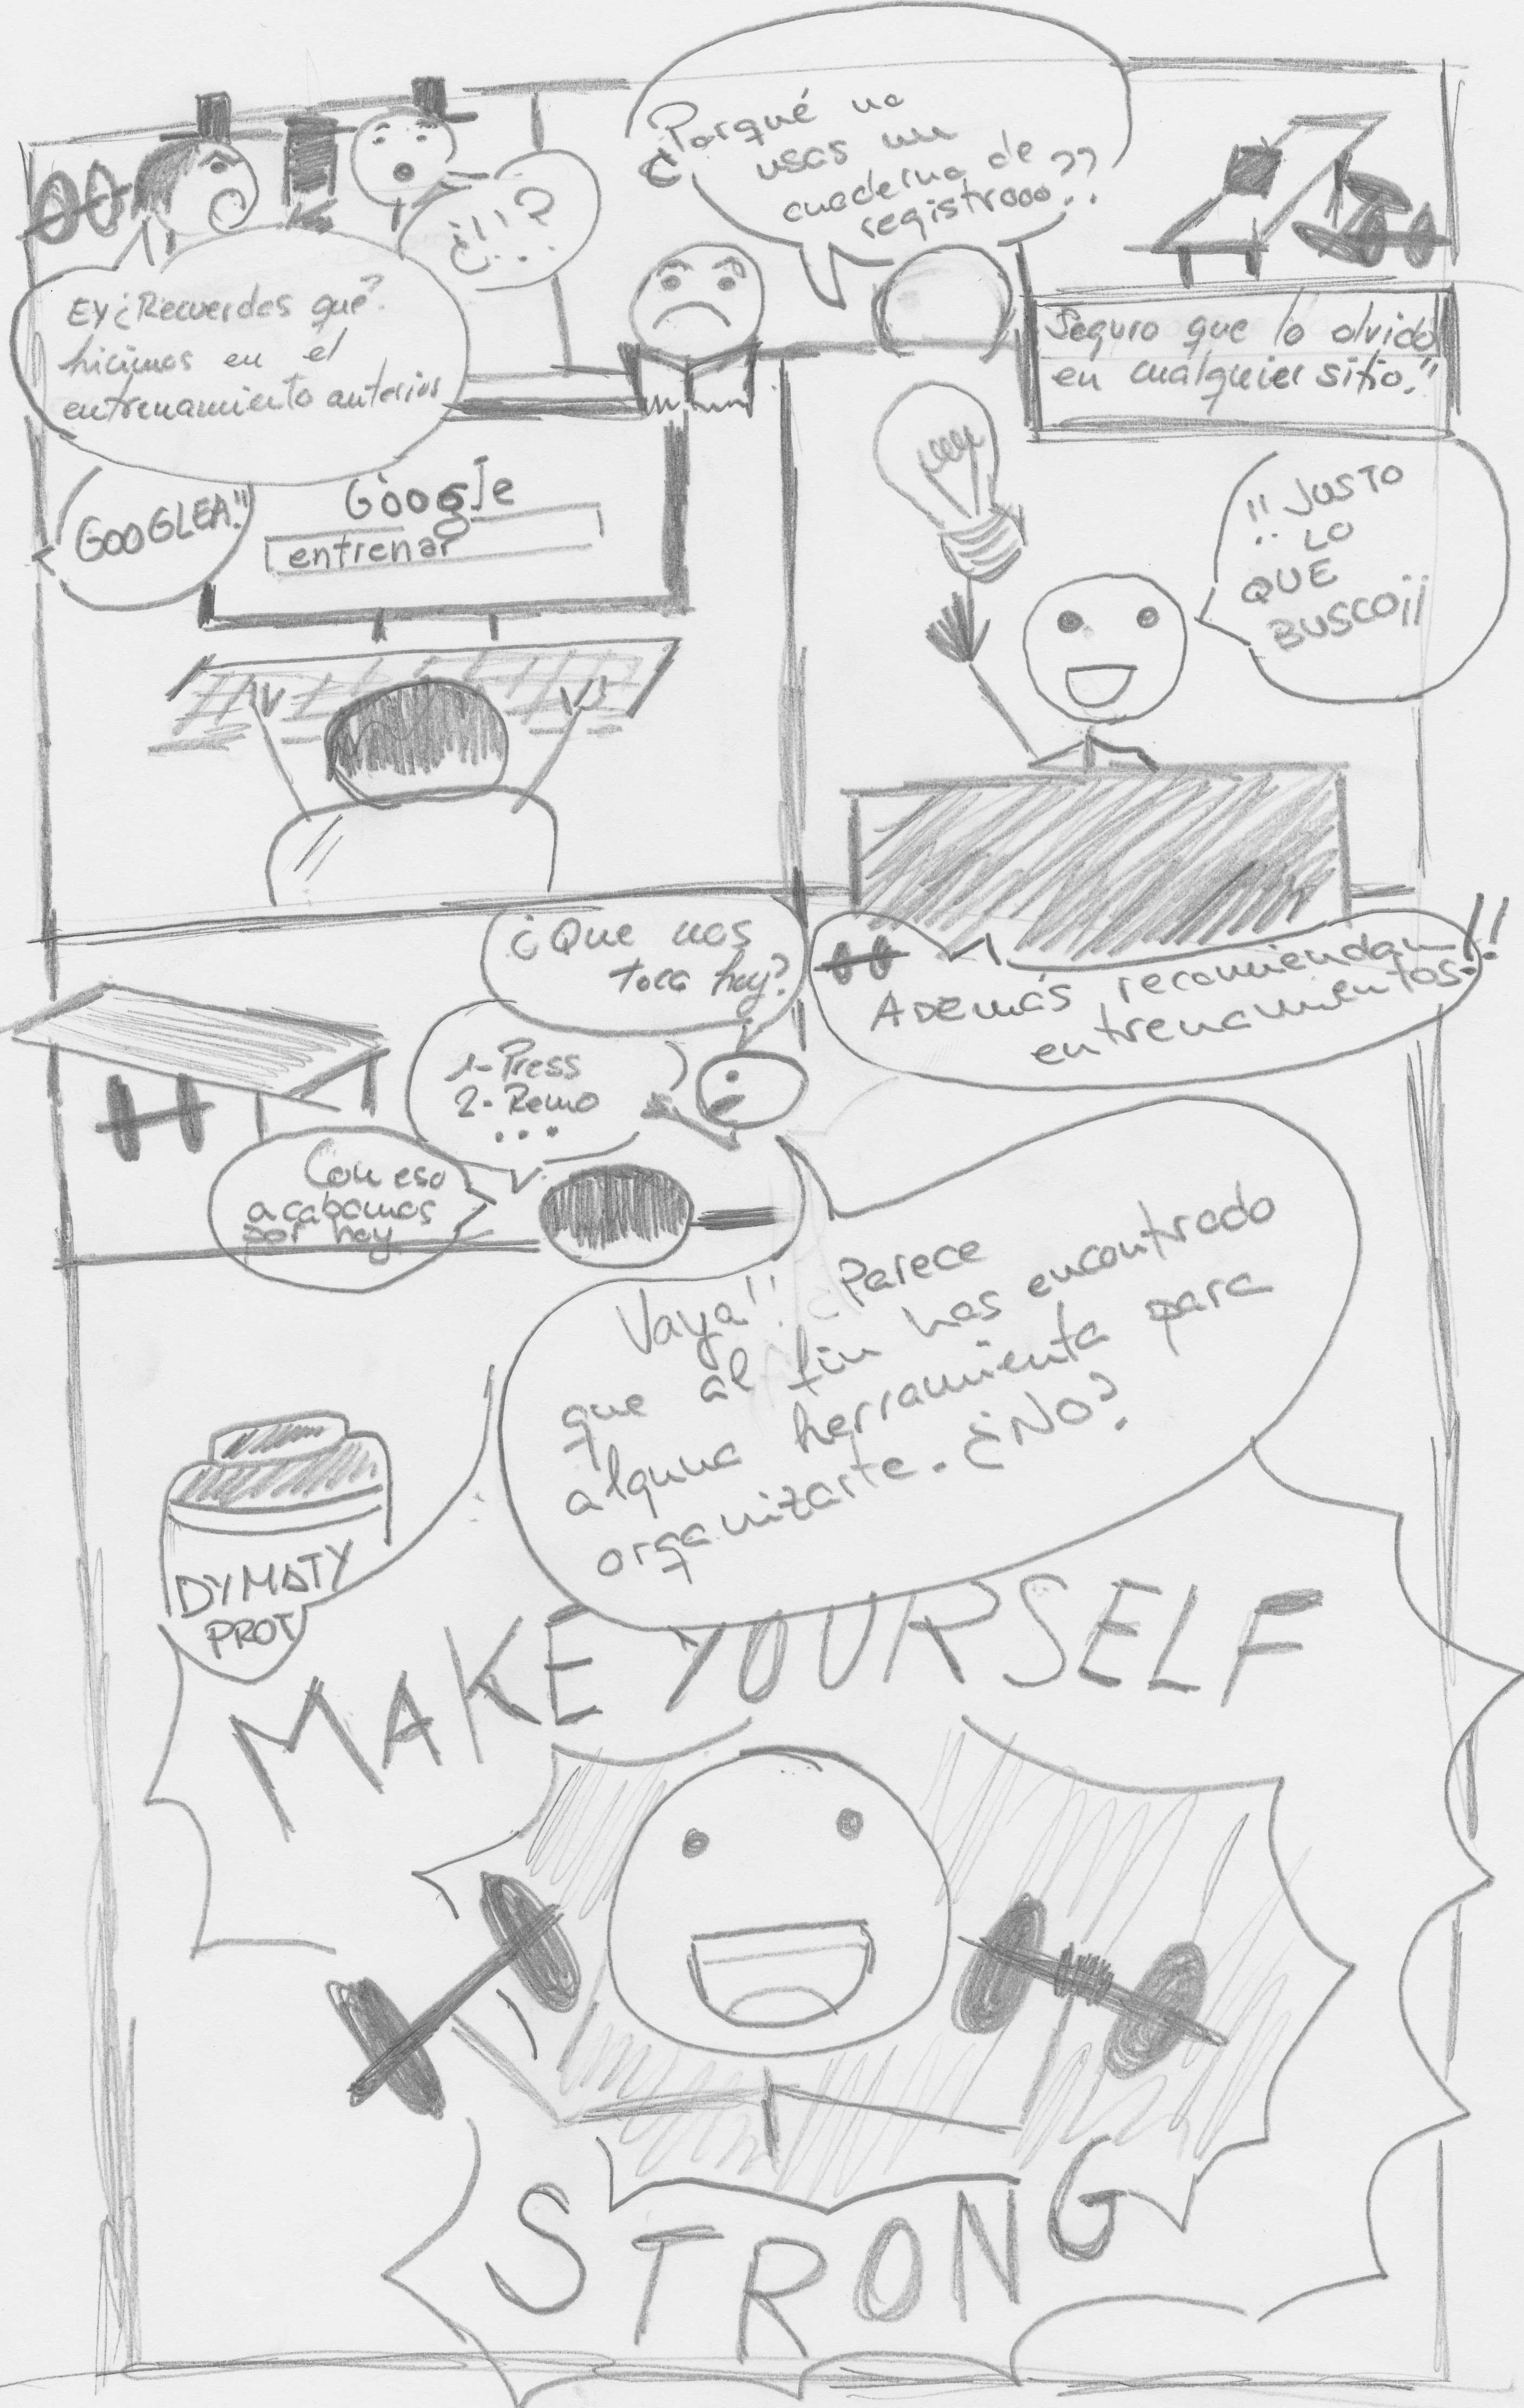 EY ¿Recuerdas que?
hicimos en el
entrenamiento anterior
¿!!...?
¿Porqué no
usas un
cuaderno de
registrooo??
Seguro que lo olvido
en cualquier sitio.!!
GOOGLEA!!
Google
entrenar
!!JUSTO
LO
QUE
BUSCO¡¡
Además recomiendan
entrenamientos!!
¿Que nos
toca hoy?
1-Press
2-Remo
...
Con eso
acabamos
por hoy
Vaya!! Parece
que al fin has encontrado
alguna herramienta para
organizarte. ¿No?
DYMATY
PROT
MAKE YOURSELF
STRONG